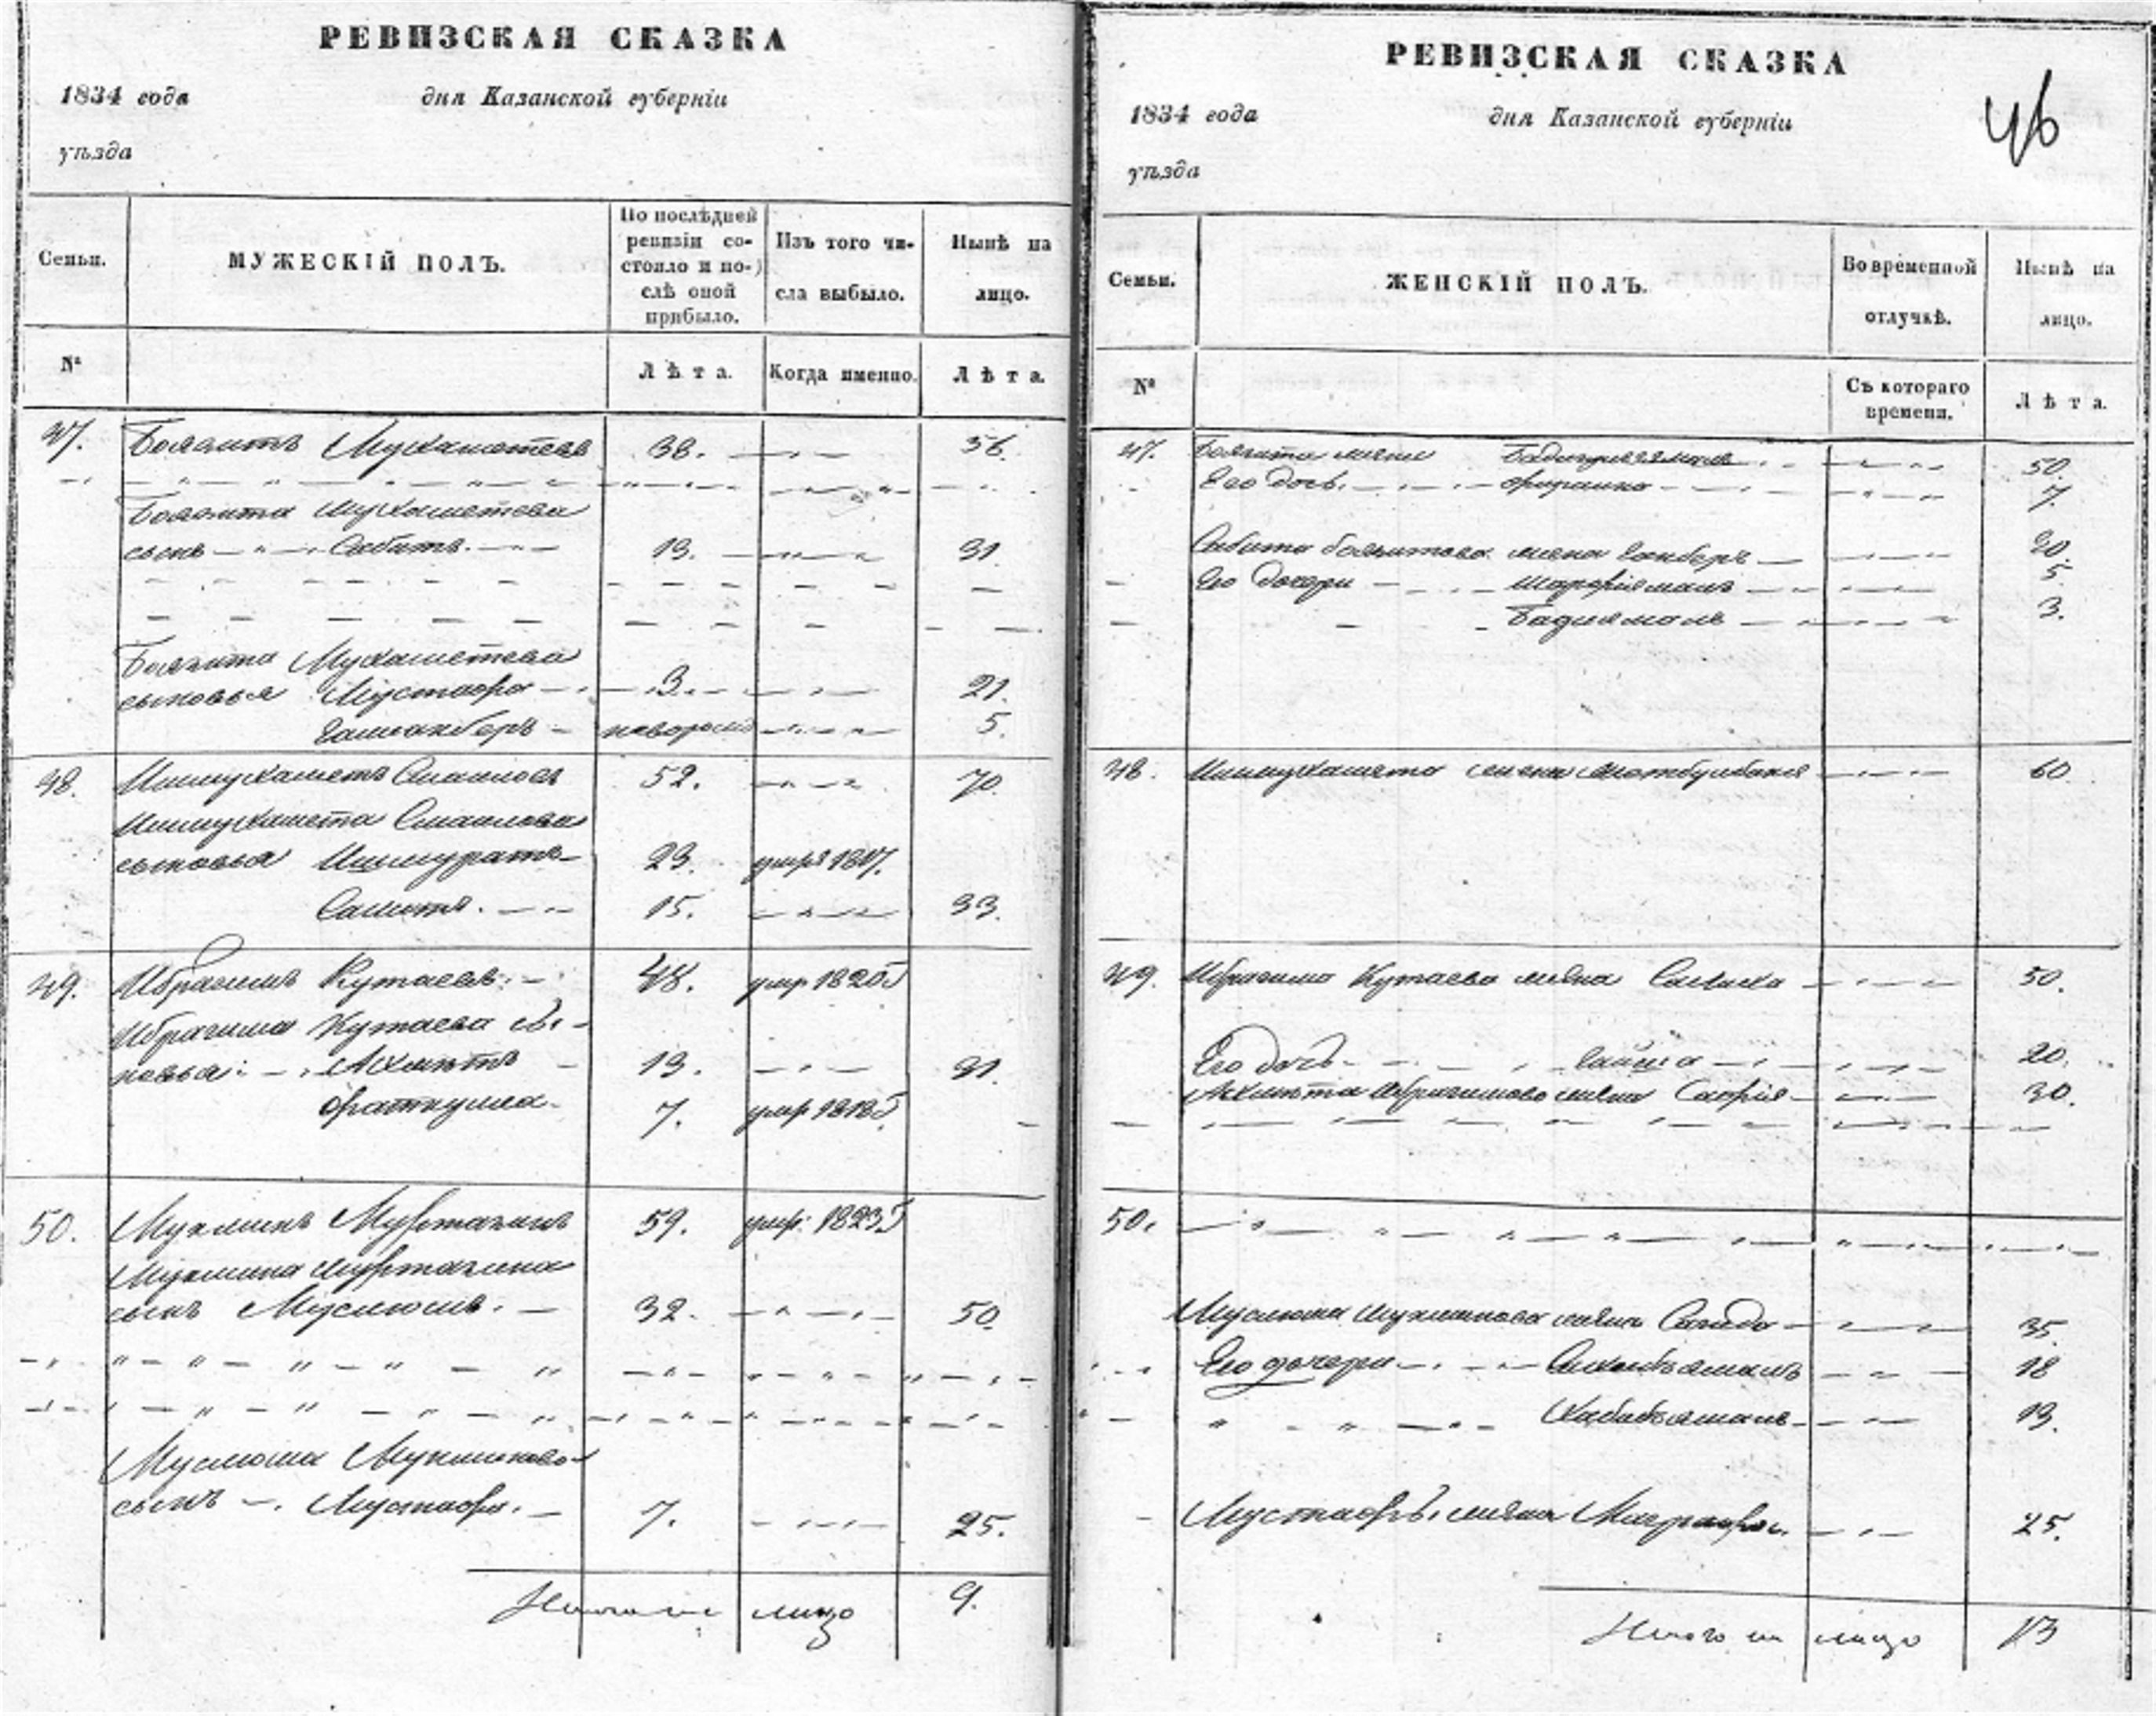 РЕВИЗСКАЯ СКАЗКА
1834 года дня Казанской губерніи
уѣзда
Семьи. МУЖЕСКІЙ ПОЛЪ. По послѣдней ревизіи состояло и послѣ оной прибыло. Изъ того числа выбыло. Нынѣ на лицо.
№ Лѣта. Когда именно. Лѣта.
47. Боязитъ Мухаметевъ 38. 56.
Боязита Мухаметева
сынъ Сабитъ 13. 31.
Боязита Мухаметева
сыновья Мустафа 3. 21.
новорожд 5.
48. Ишмухаметъ Смаиловъ 52. 70.
Ишмухамета Смаилова
сыновья Ишмуратъ 23. умръ 1817.
15. 33.
49. Ибрагимъ Кутаевъ 48. умр 1820г
Ибрагима Кутаева сы-
новья Ахметъ 13. 31.
Фаткулла 7. умр 1818г.
50. Мукминъ Муртазинъ 59. умр. 1823г
Мукмина Муртазина
сынъ Муслюмъ. 32. 50.
Муслюма Мукминова
сынъ Мустафа. 7. 25.
Итого на лицо 9.
РЕВИЗСКАЯ СКАЗКА
1834 года дня Казанской губерніи
46
уѣзда
Семьи. ЖЕНСКІЙ ПОЛЪ. Во временной отлучкѣ. Нынѣ на лицо.
№ Съ котораго времени. Лѣта.
47. Боязита жена 50.
Его дочь 7.
Сабита Боязитова жена 30.
Его дочери 5.
Бадиямалъ 3.
48. Ишмухамета жена 60.
49. Ибрагима Кутаева жена Салиха 50.
Его дочь Гайша 20.
Ахмета Ибрагимова жена Сафія 30.
50.
Муслюма Мукминова жена Сагида 35.
Его дочери 18
13.
Мустафы жена 25.
Итого на лицо 13